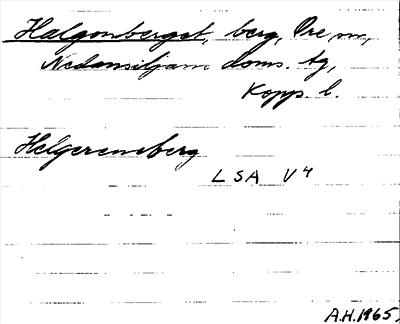 Halgonberget, berg, Ore sn,
Nedansiljans doms. tg,
Kopp. l.
Helgerensberg
LSA V4
A.H. 1965.